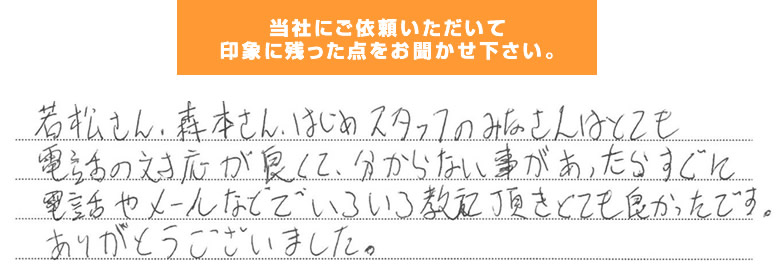 当社にご依頼いただいて
印象に残った点をお聞かせ下さい。
若松さん、森本さん、はじめスタッフのみなさんはとても
電話の対応が良くて、分からない事があったらすぐに
電話やメールなどでいろいろ教え頂きとても良かったです。
ありがとうございました。